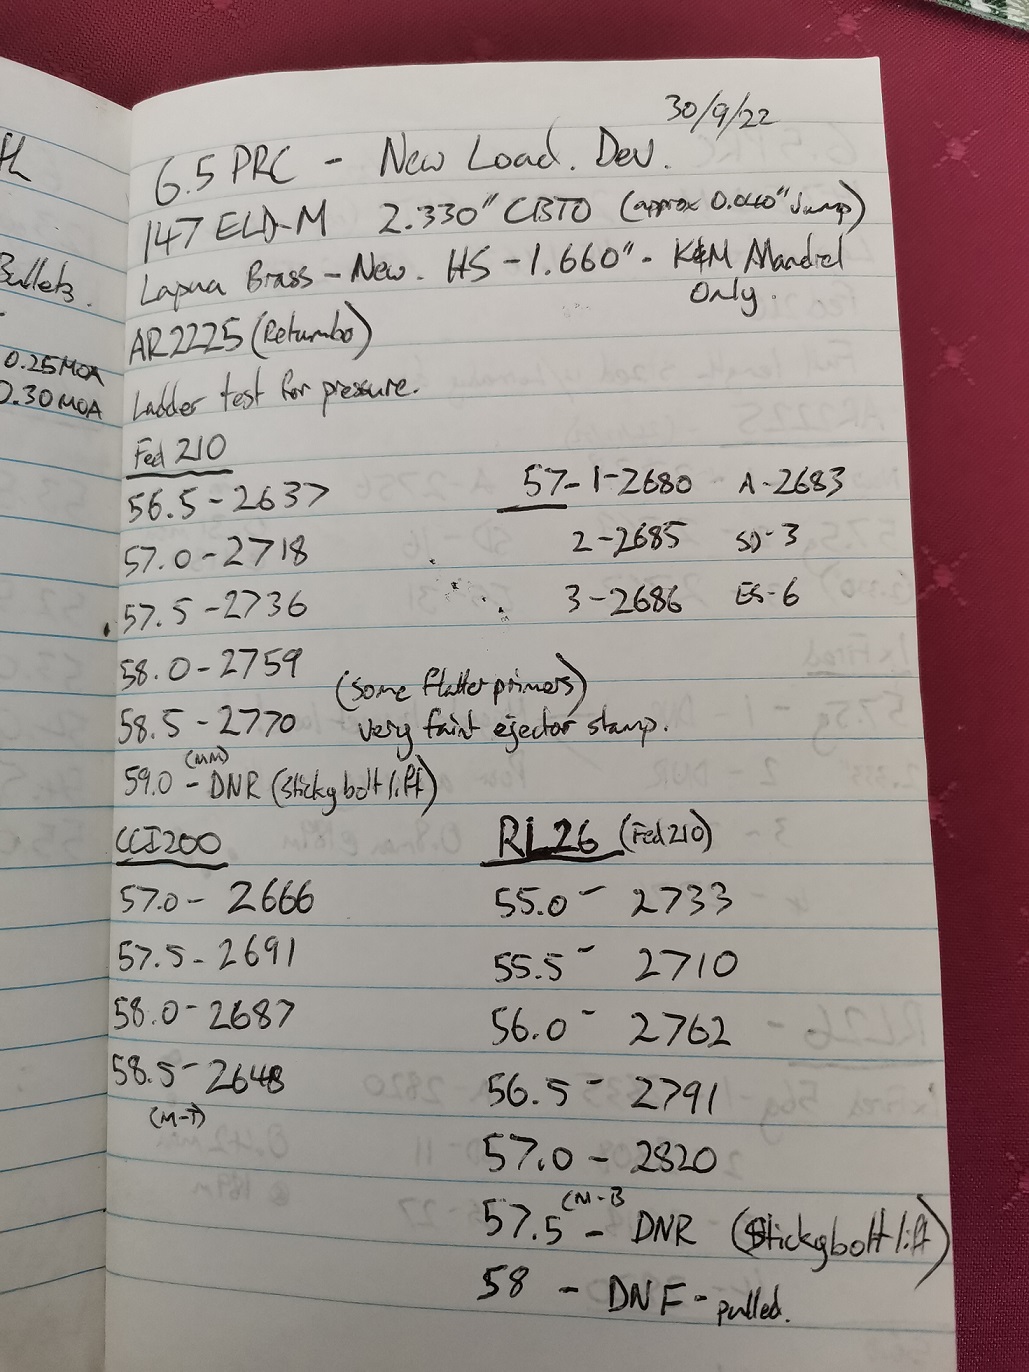 30/9/22
6.5 PRC - New Load. Dev.
147 ELD-M 2.330" CBTO (approx 0.040" Jump)
Lapua Brass - New. HS - 1.660" - K&M Mandrel
Only.
AR2225 (Retumbo)
Ladder test for pressure.
Fed 210
56.5 - 2637
57.0 - 2718
57.5 - 2736
58.0 - 2759
58.5 - 2770
(some flatter primers)
very faint ejector stamp.
(MM)
59.0 - DNR (sticky bolt lift)
57 - 1 - 2680 A - 2683
2 - 2685 SD - 3
3 - 2686 ES - 6
CCI200
57.0 - 2666
57.5 - 2691
58.0 - 2687
58.5 - 2648
(M-T)
RL26 (Fed 210)
55.0 - 2733
55.5 - 2710
56.0 - 2762
56.5 - 2791
57.0 - 2820
(M-B
57.5 - DNR (Sticky bolt lift)
58 - DNF - pulled.
Bullets.
0.25 MOA
0.30 MOA